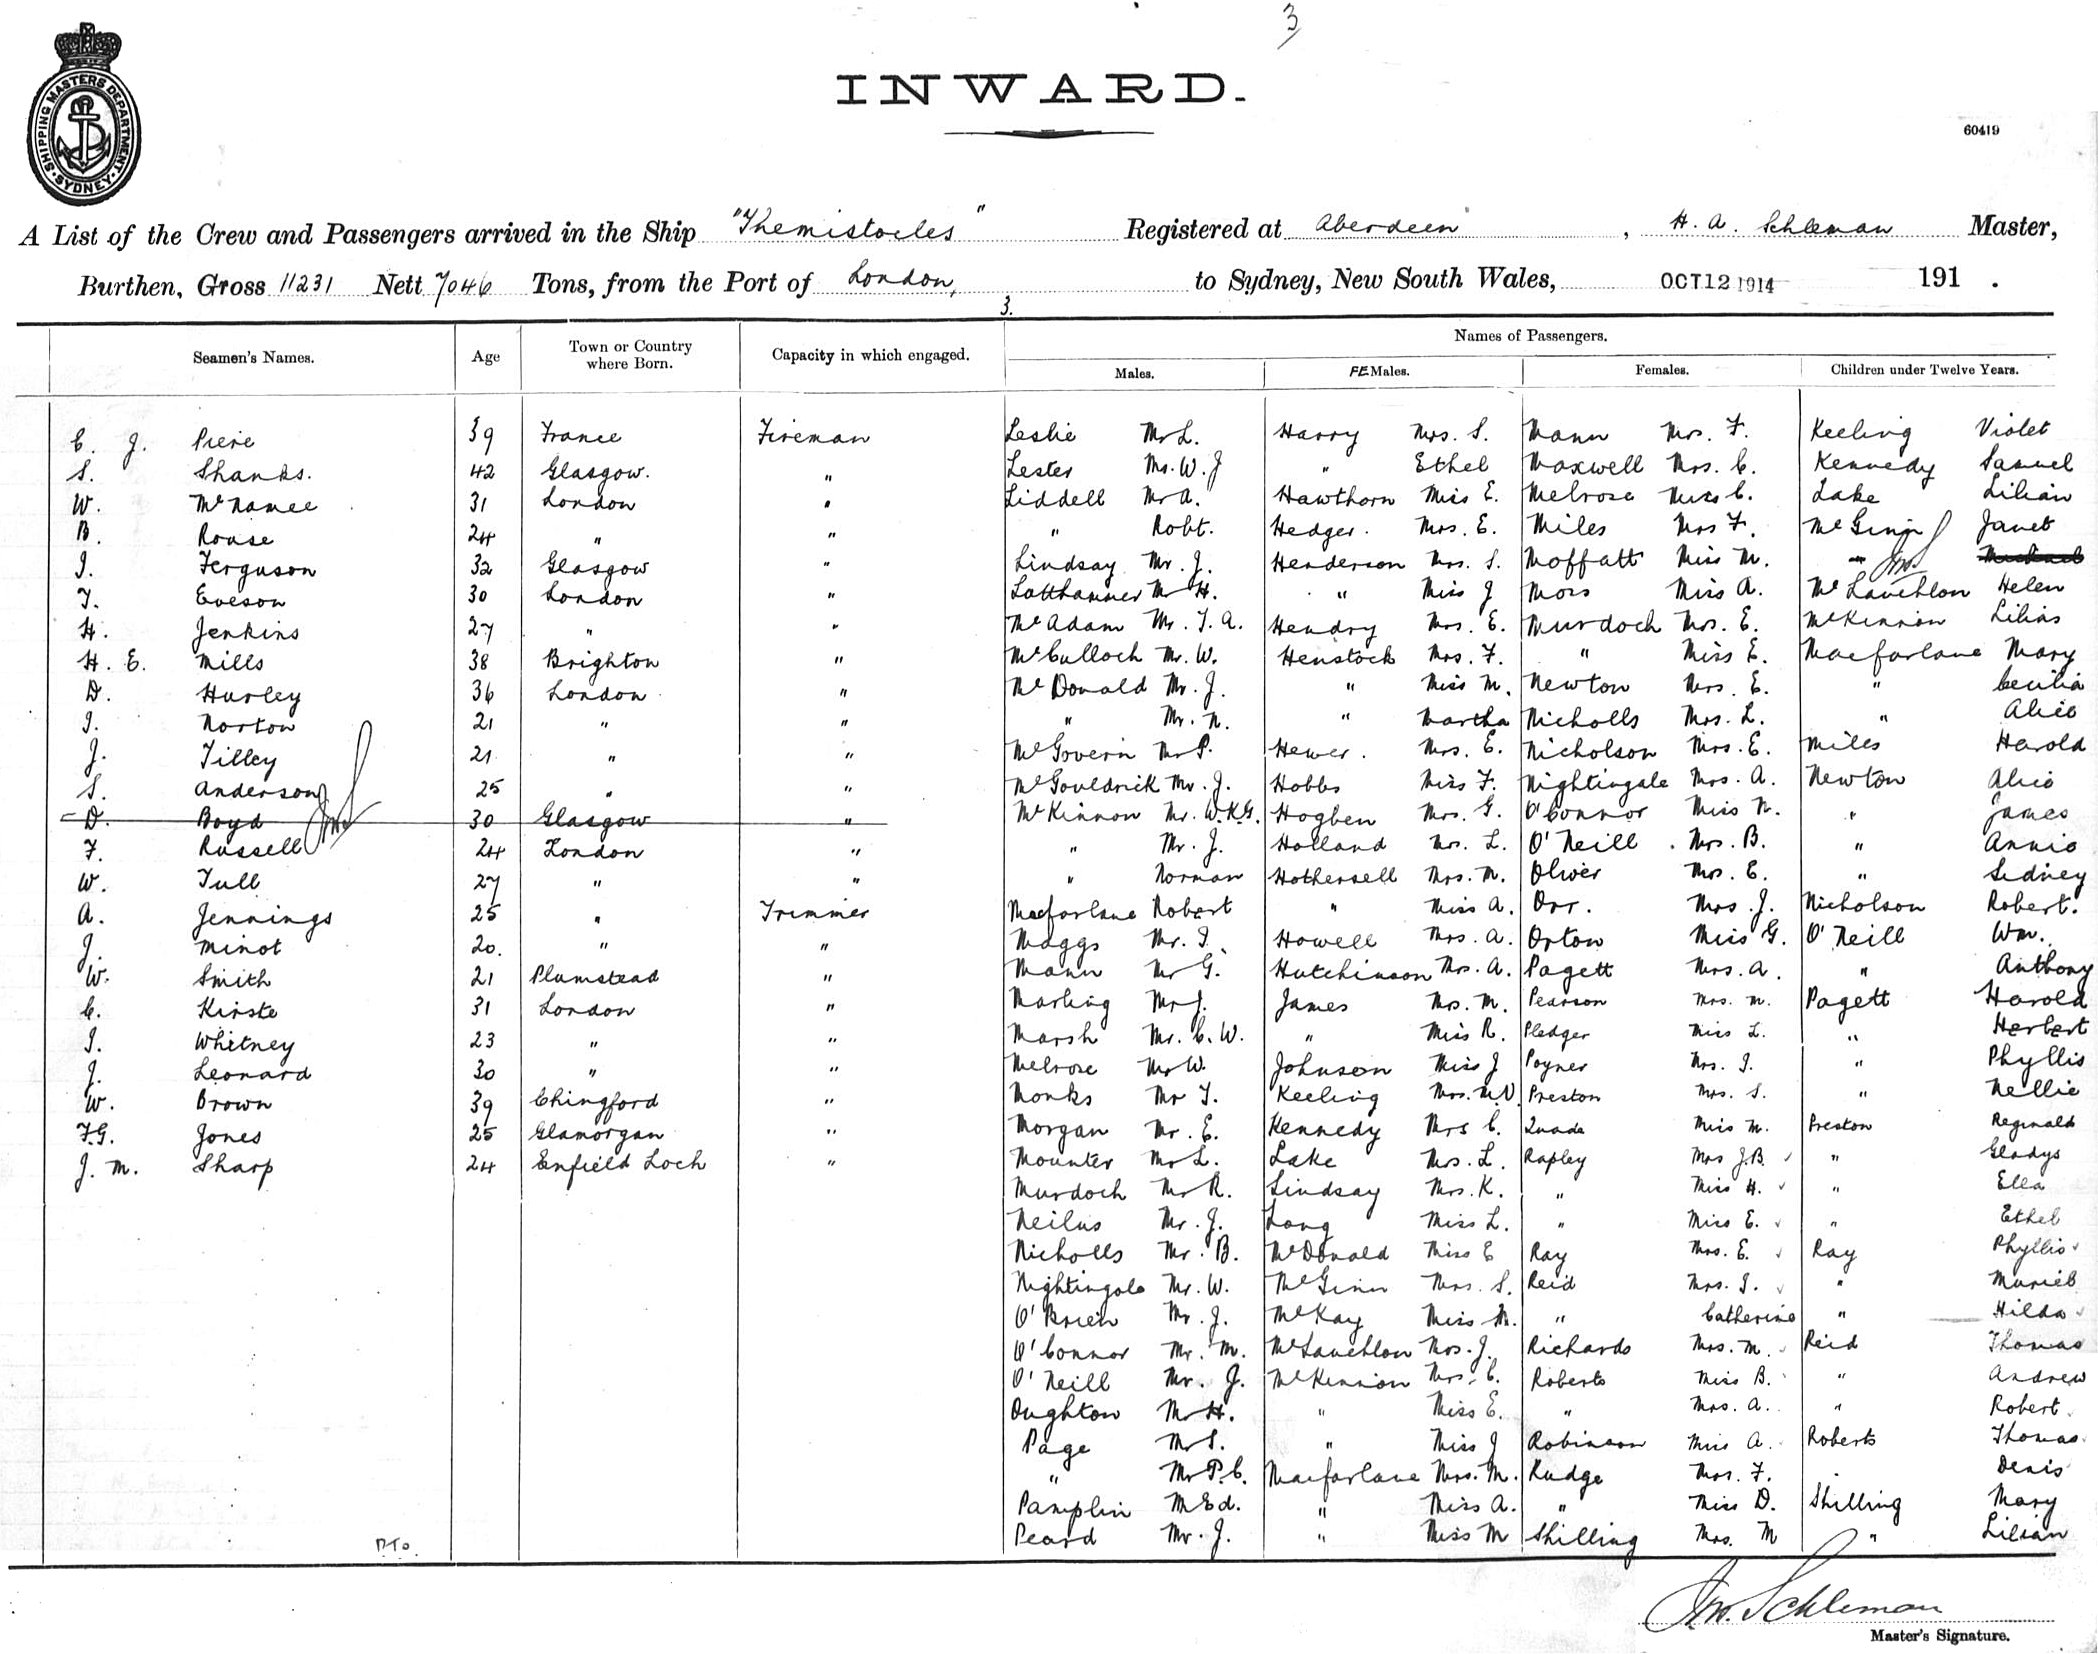 3
INWARD.
SHIPPING MASTERS DEPARTMENT · SYDNEY ·
60419
A List of the Crew and Passengers arrived in the Ship "Themistocles" Registered at Aberdeen, H. A. Schleman Master,
Burthen, Gross 11231 Nett 7046 Tons, from the Port of London, to Sydney, New South Wales, OCT 12 1914 191 .
3.
Seamen's Names. Age Town or Country where Born. Capacity in which engaged. Names of Passengers.
Males. FEMales. Females. Children under Twelve Years.
C. J. Piere 39 France Fireman Leslie Mr L. Harry Mrs. S. Mann Mrs. F. Keeling Violet
S. Shanks. 42 Glasgow. " Lester Mr. W. J " Ethel Maxwell Mrs. C. Kennedy Samuel
W. McNamee 31 London " Liddell Mr A. Hawthorn Miss E. Melrose Miss C. Lake Lilian
B. Rouse 24 " " " Robt. Hedger. Mrs. E. Miles Mrs F. McGinn Janet
J. Ferguson 32 Glasgow " Lindsay Mr. J. Henderson Mrs. S. Moffatt Miss M. "
T. Eveson 30 London " Latthammer Mr H. " Miss J Mors Miss A. McLauchlon Helen
H. Jenkins 27 " " McAdam Mr. T. A. Hendry Mrs. E. Murdoch Mrs. E. McKinnion Lilias
H. E. Mills 38 Brighton " McCulloch Mr. W. Henstock Mrs. F. " Miss E. Macfarlane Mary
D. Hurley 36 London " McDonald Mr. J. " Miss M. Newton Mrs. E. " Cecilia
J. Norton 21 " " " Mr. N. " Martha Nicholls Mrs. L. " Alice
J. Tilley 21 " " McGovern Mr P. Hewer. Mrs. E. Nicholson Mrs. E. Miles Harold
S. Anderson 25 " " McGouldrick Mr. J. Hobbs Miss F. Nightingale Mrs. A. Newton Alice
D. Boyd 30 Glasgow " McKinnon Mr. W.K.G. Hogben Mrs. G. O'Connor Miss N. " James
F. Russell 24 London " " Mr. J. Holland Mrs. L. O'Neill Mrs. B. " Annie
W. Tull 27 " " " Norman Hothersell Mrs. M. Oliver Mrs. E. " Sidney
A. Jennings 25 " Trimmer Macfarlane Robert " Miss A. Orr. Mrs. J. Nicholson Robert.
J. Minot 20. " " Maggs Mr. I. Howell Mrs. A. Orton Miss G. O'Neill Wm.
W. Smith 21 Plumstead " Mann Mr G. Hutchinson Mrs. A. Pagett Mrs. A. " Anthony
C. Kirste 31 London " Marling Mr J. James Mrs. M. Pearson Mrs. M. Pagett Harold
J. Whitney 23 " " Marsh Mr. C. W. " Miss R. Pledger Miss L. " Herbert
J. Leonard 30 " " Melrose Mr W. Johnson Miss J Poyner Mrs. I. " Phyllis
W. Brown 39 Chingford " Monks Mr T. Keeling Mrs. M.V. Preston Mrs. S. " Nellie
F.G. Jones 25 Glamorgan " Morgan Mr. E. Kennedy Mrs C. Quade Miss M. Preston Reginald
J. M. Sharp 24 Enfield Loch " Mounter Mr L. Lake Mrs. L. Rapley Mrs J.B. " Gladys
Murdoch Mr R. Lindsay Mrs. K. " Miss H. " Ella
Neilus Mr. J. Long Miss L. " Miss E. " Ethel
Nicholls Mr. B. McDonald Miss E Ray Mrs. E. Ray Phyllis
Nightingale Mr. W. McGinn Mrs. S. Reid Mrs. I. " Muriel
O'Brien Mr. J. McKay Miss M. " Catherine " Hilda
O'Connor Mr. M. McLauchlon Mrs. J. Richards Mrs. M. Reid Thomas
O'Neill Mr. J. McKinnion Mrs. C. Roberts Miss B. " Andrew
Oughton Mr H. " Miss E. " Mrs. A. " Robert
Page Mr S. " Miss J Robinson Miss A. Roberts Thomas
" Mr P. C. Macfarlane Mrs. M. Rudge Mrs. F. " Denis
Pamplin Mr Ed. " Miss A. " Miss D. Shilling Mary
Peard Mr. J. " Miss M Shilling Mrs. M " Lilian
P.T.O.
Schleman
Master's Signature.